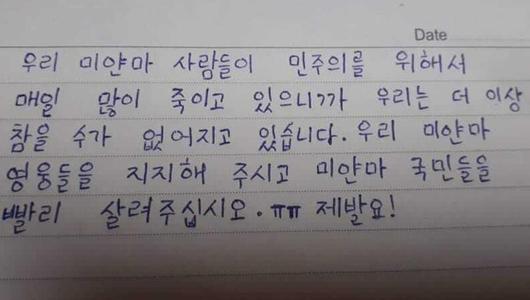 Date
우리 미얀마 사람들이 민주의를 위해서
매일 많이 죽이고 있으니까 우리는 더 이상
참을 수가 없어지고 있습니다. 우리 미얀마
영웅들을 지지해 주시고 미얀마 국민들을
빨리 살려주십시오. ㅠㅠ 제발요!